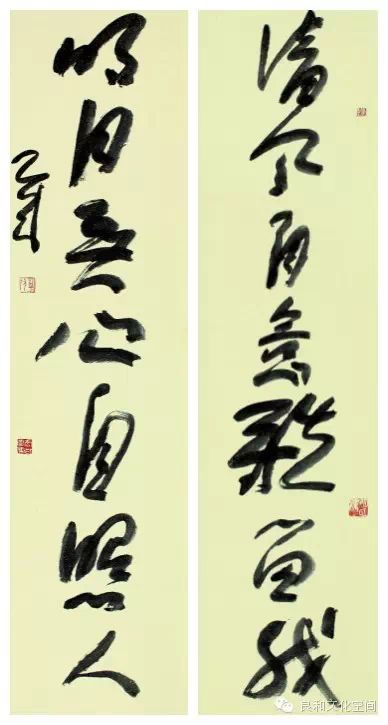 清風有意難留我
明月無心自照人
良和文化空间